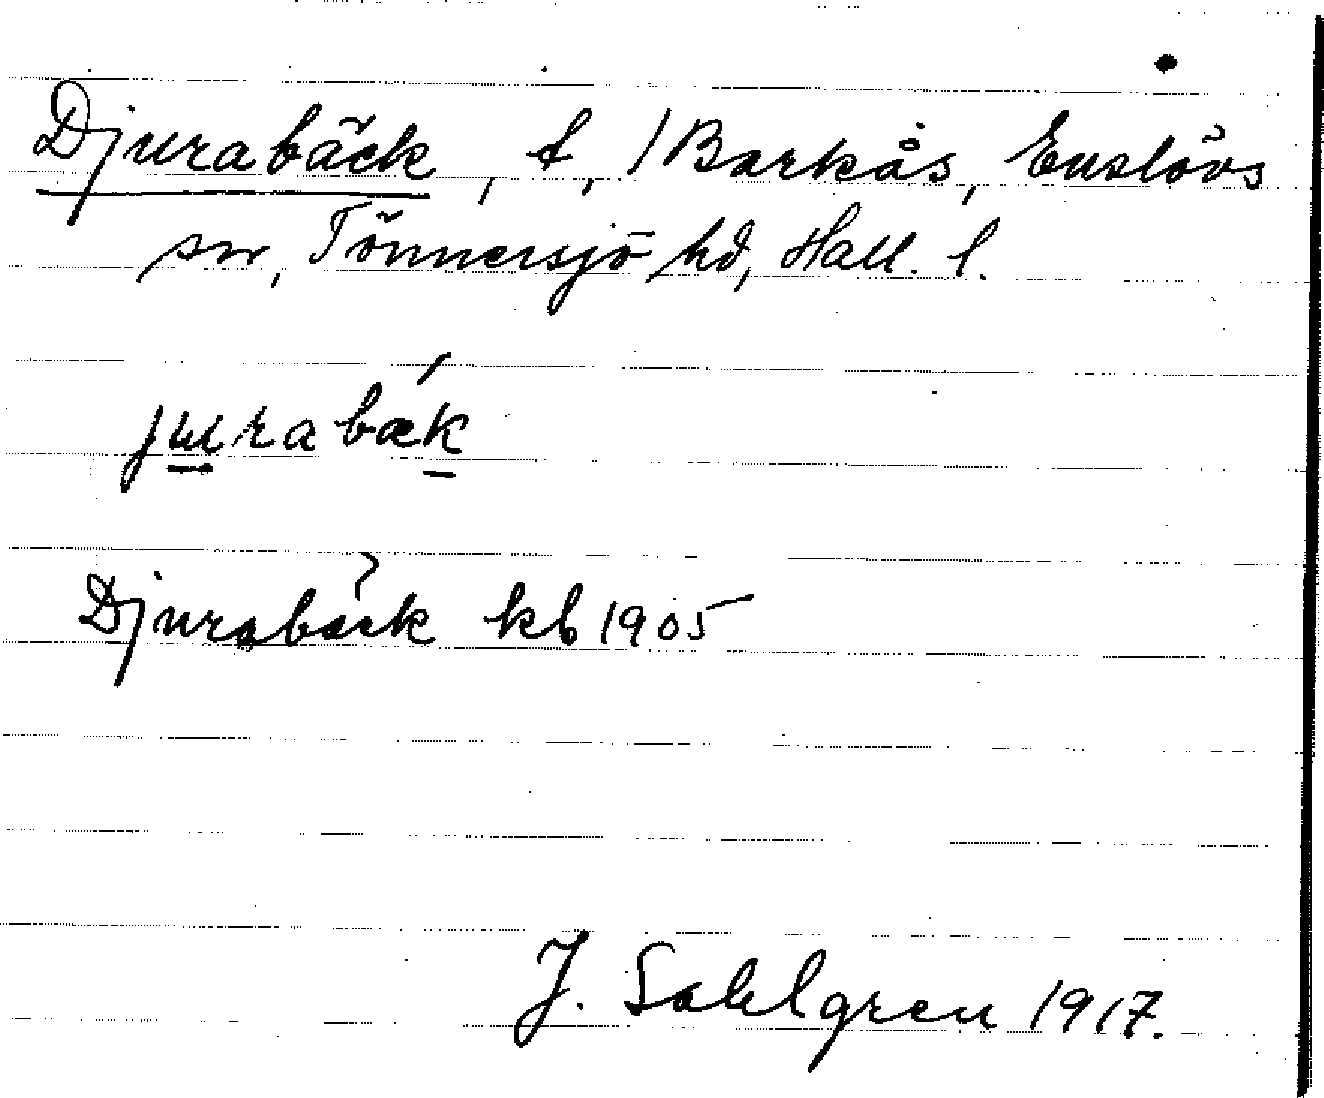 Djurabäck, t, / Barkås, Enslövs
sn, Tönnersjö hd, Hall. l.
jurabæk
Djurabäck kb 1905
J. Sahlgren 1917.